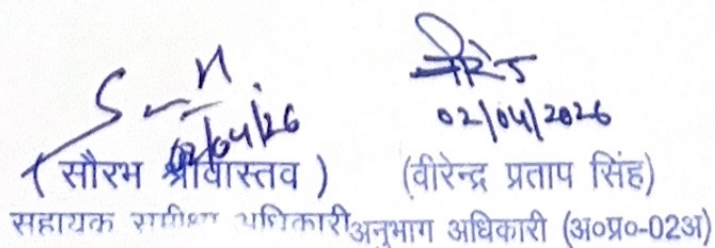 02/04/26
02/04/2026
(सौरभ श्रीवास्तव)
(वीरेन्द्र प्रताप सिंह)
सहायक समीक्षा अधिकारी
अनुभाग अधिकारी (अ०प्र०-02अ)